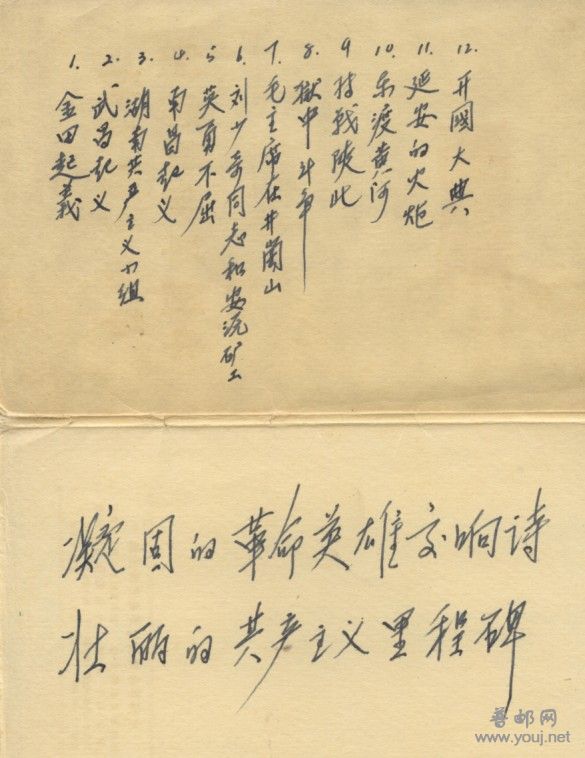 1. 金田起義
2. 武昌起义
3. 湖南共产主义小组
4. 南昌起义
5 英勇不屈
6. 刘少奇同志和安沅矿工
7. 毛主席在井崗山
8. 獄中斗争
9 转战陕北
10. 东渡黄河
11. 延安的火炬
12. 开國大典
凝固的革命英雄交响诗
壮丽的共产主义里程碑
普邮网
www.youj.net